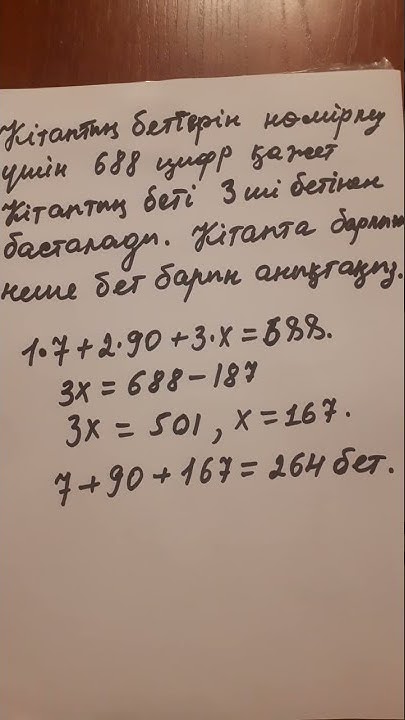 Кітаптың беттерін нөмірлеу
үшін 688 цифр қажет
Кітаптың беті 3 ші бетінен
басталады. Кітапта барлығы
неше бет барын анықтаңыз.
1·7+2·90+3·x=688.
3x = 688-187
3x = 501, x=167.
7+90+167=264 бет.